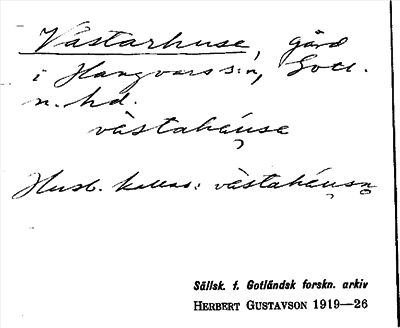 Västarhuse, gård
i Hangvars s:n, Gotl.
n. hd.
västaháusę
Husb. kallas: västaháusn̥
Sällsk. f. Gotländsk forskn. arkiv
HERBERT GUSTAVSON 1919—26